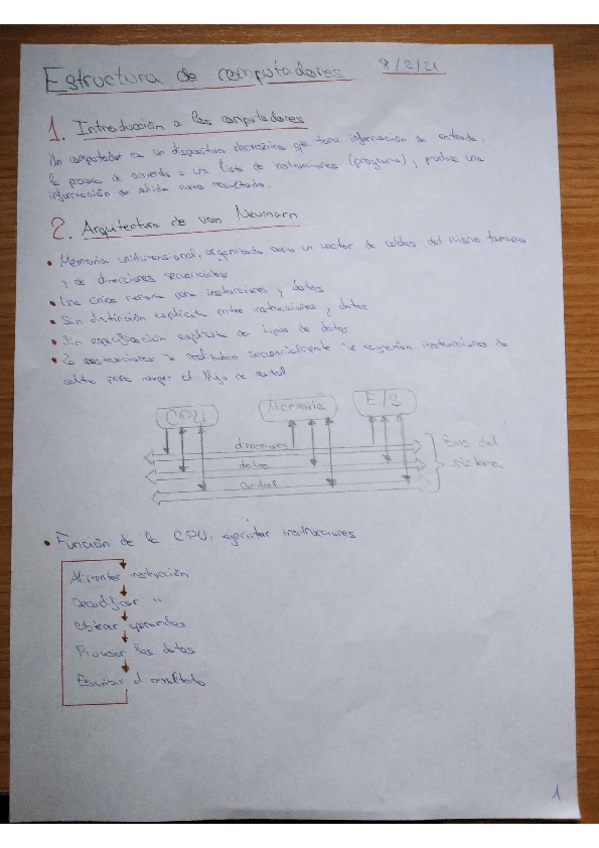 Estructura de computadores 8/2/21
1. Introducción a los computadores
Un computador es un dispositivo electrónico que toma información de entrada,
la procesa de acuerdo a una lista de instrucciones (programa), y produce una
información de salida como resultado.
2. Arquitectura de von Neumann
• Memoria unidimensional, organizada como un vector de celdas del mismo tamaño
y de direcciones secuenciales
• Una única memoria para instrucciones y datos
• Sin distinción explícita entre instrucciones y datos
• Sin especificación explícita de tipos de datos
• instrucciones se secuencialmente se instrucciones de
salto para el flujo de control
CPU Memoria E/S
direcciones
datos
control
Bus del
sistema
• Función de la CPU: ejecutar instrucciones
instrucción
Decodificar "
Obtener operandos
Procesar los datos
Escribir el resultado
1